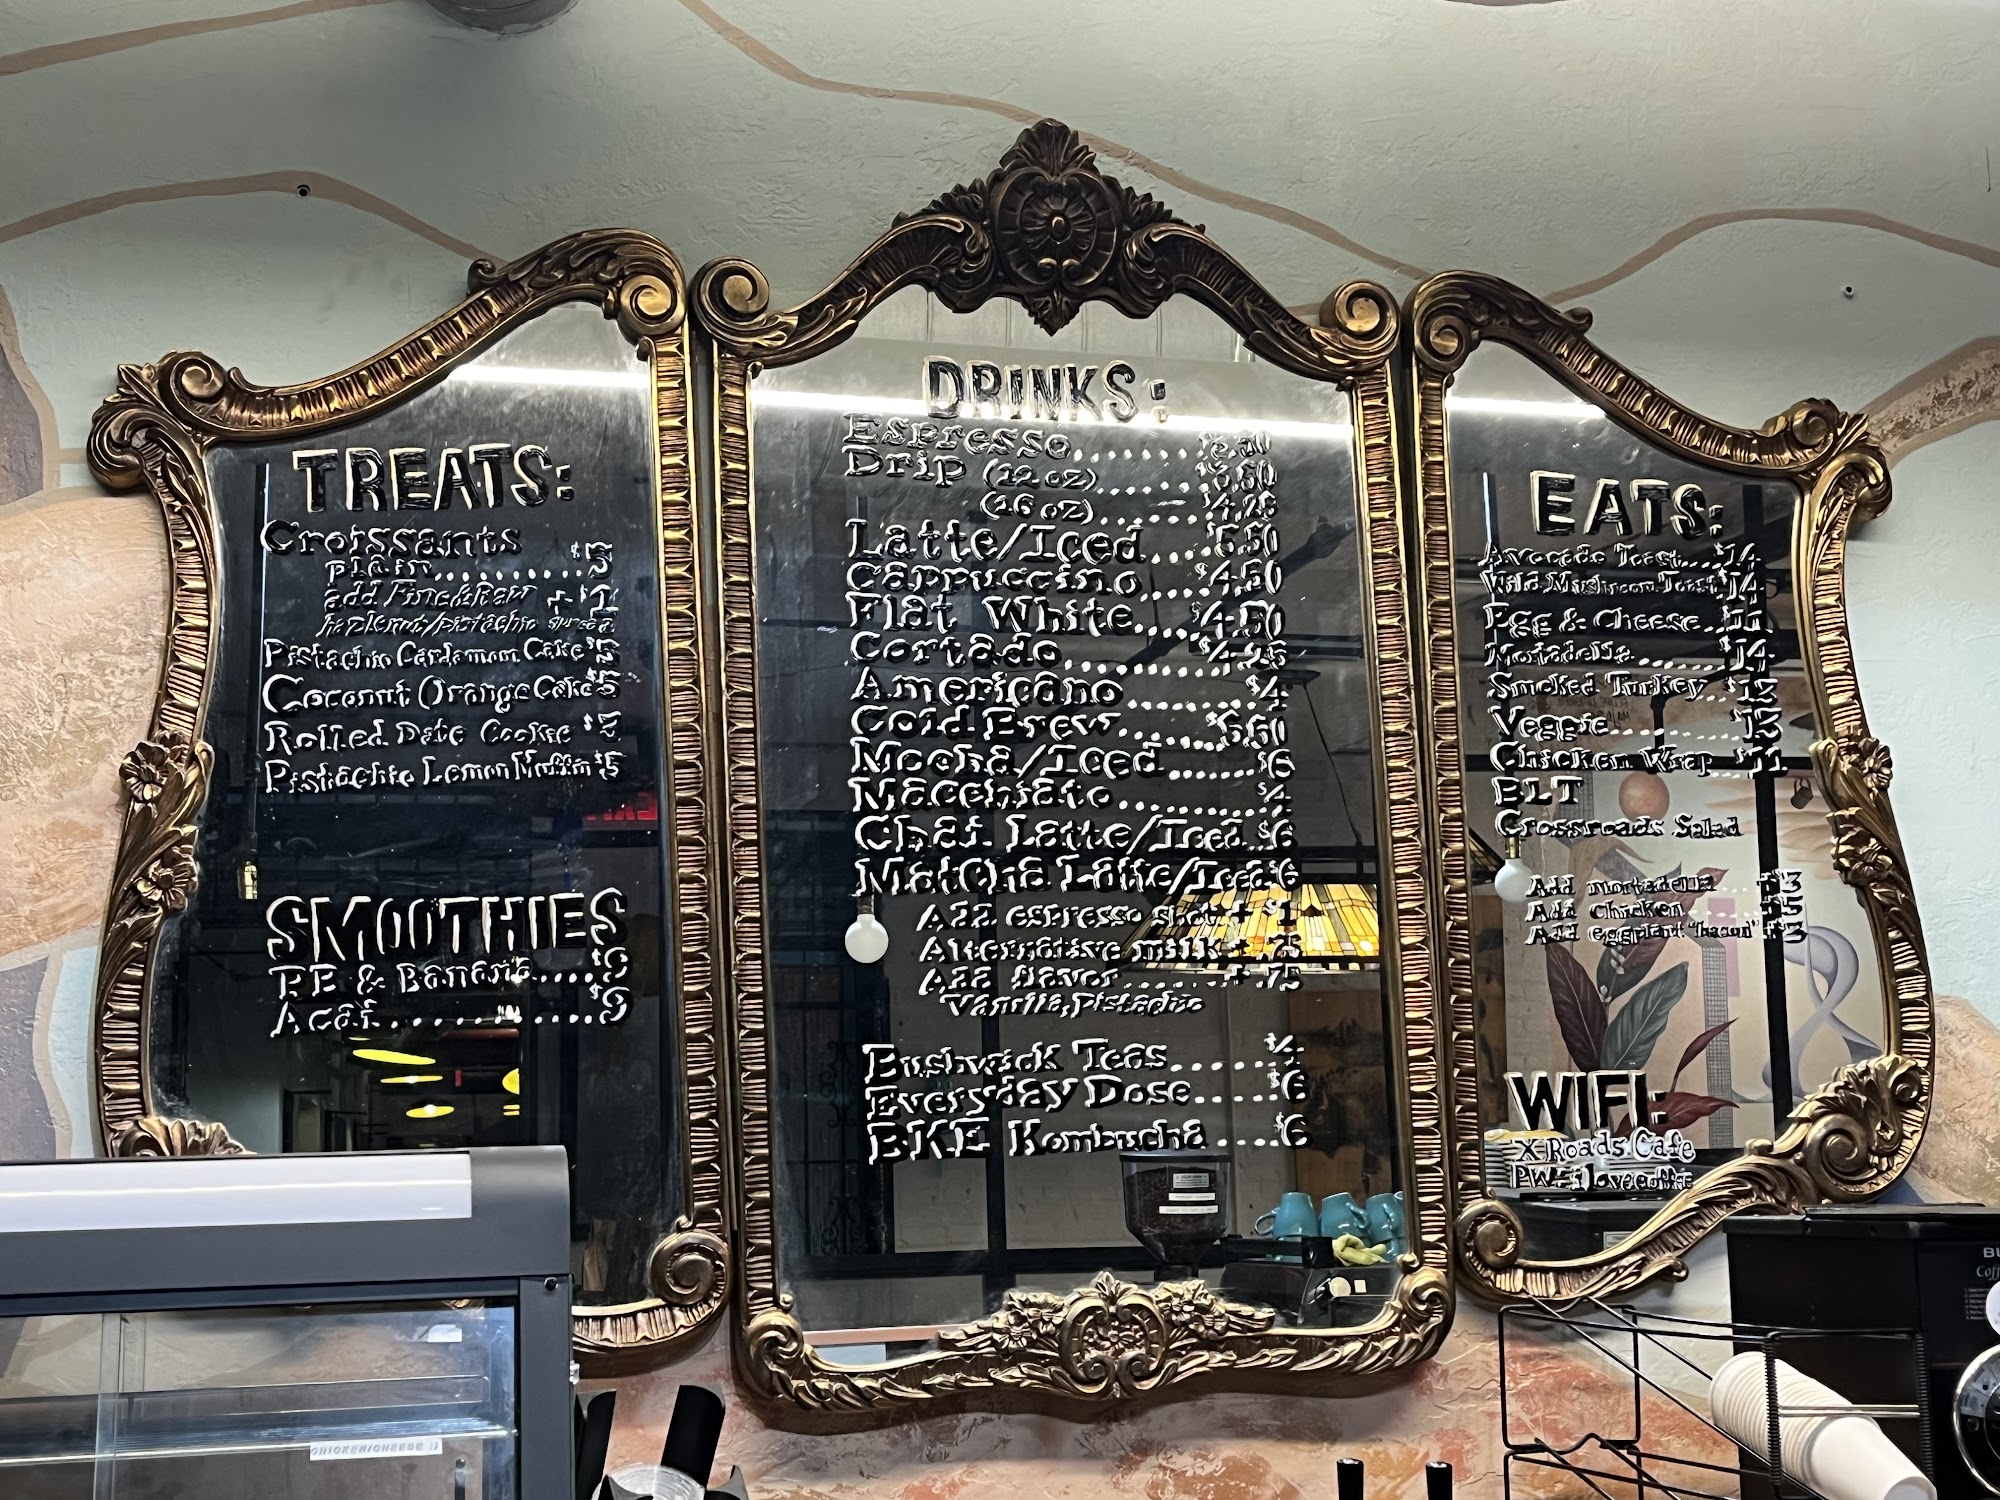 TREATS:
Croissants
plain..........$5
add Fine&Raw + $1
hazlenut/pistachio spread
Pistachio Cardamon Cake $5
Coconut Orange Cake $5
Rolled Date Cookie
Pistachio Lemon Muffin $5
SMOOTHIES
PB & Banana....$9
Acai...........$9
DRINKS:
Espresso.......
Drip (12 oz)......$3.50
(16 oz)......$4.25
Latte/Iced...$5.50
Cappuccino....$4.50
Flat White....$4.50
Cortado........$4.25
Americano $4
Cold Brew....$5.50
Mocha/Iced......$6
Macchiato.......$4
Chai Latte/Iced..$6
Matcha Latte/Iced $6
Add espresso shot + $1
Alternative milk +
Add flavor....... + .75
Vanilla, Pistachio
Bushwick Teas.....$4
Everyday Dose.....$6
BKE Kombucha ....$6
EATS:
Avocado Toast...$14
Wild Mushroom Toast $14
Egg & Cheese...
Mortadella.......$14
Smoked Turkey..
Veggie.......
Chicken Wrap
BLT
Crossroads Salad
Add mortadella.....+$3
Add chicken
Add eggplant "bacon"
WIFI:
X-Roads Cafe
PW=ilovecoffee
CHICKEN/CHEESE